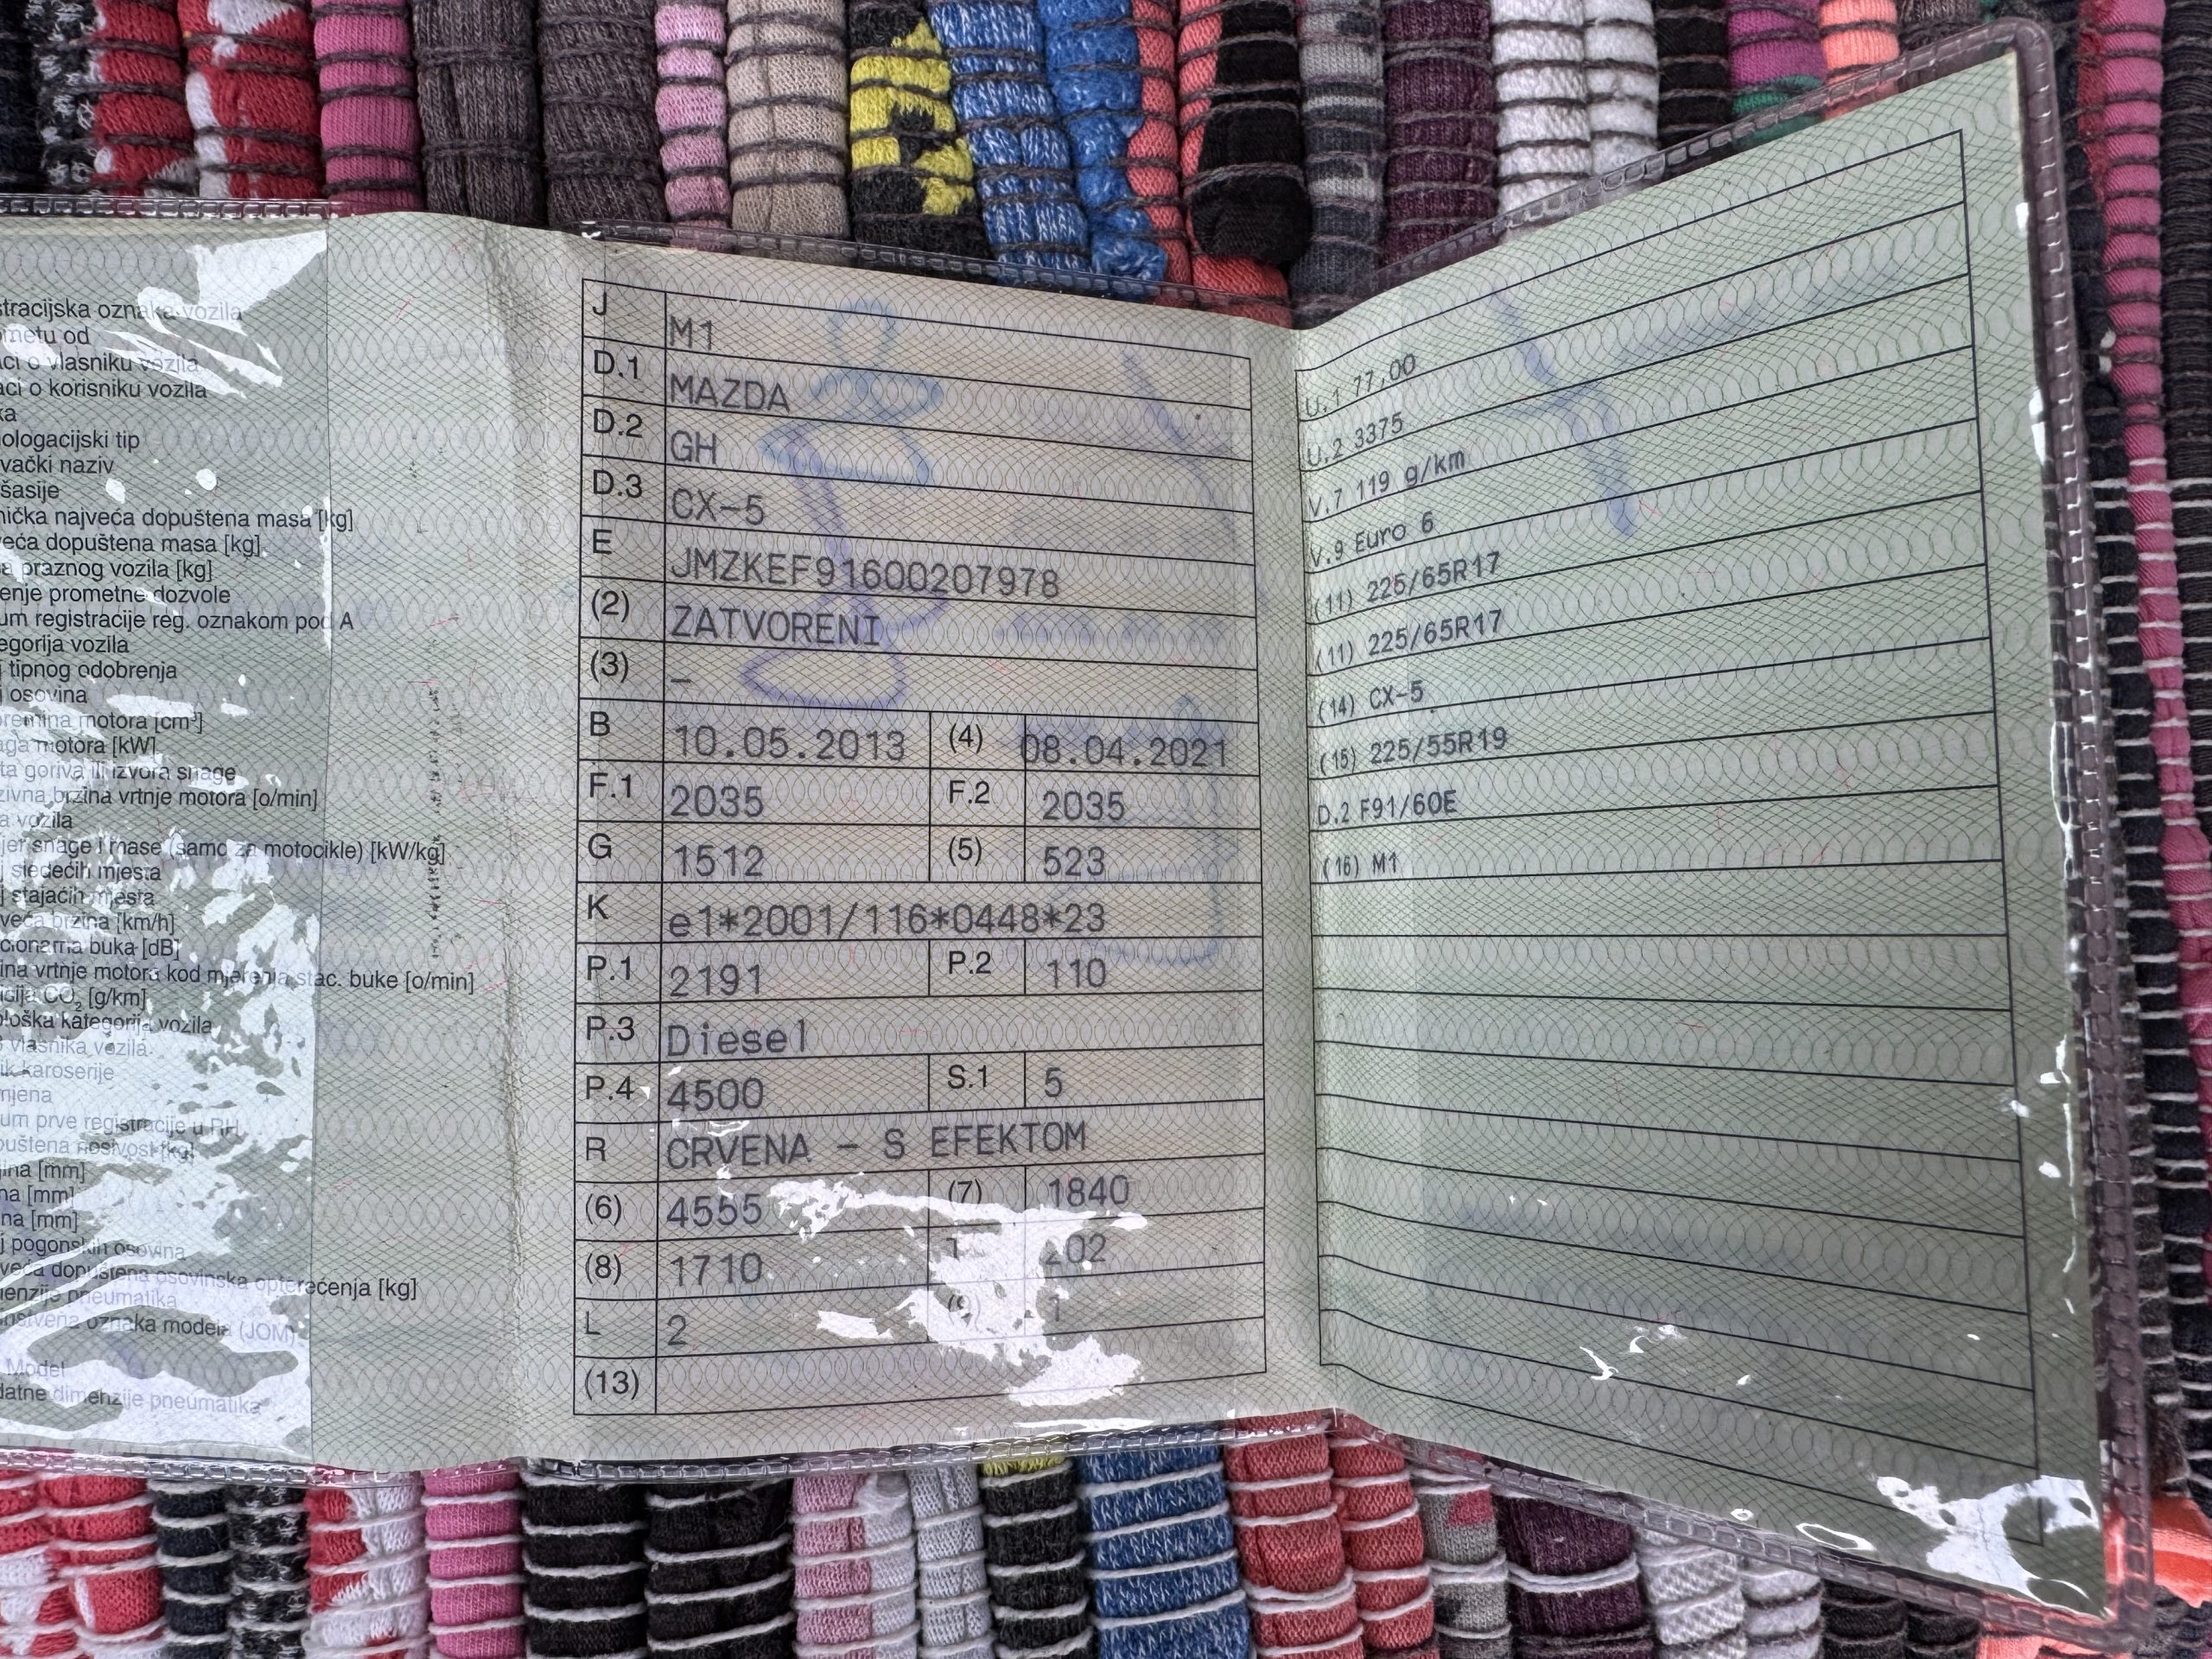 stracijska oznaka vozila
ometu od
aci o vlasniku vozila
aci o korisniku vozila
ka
ologacijski tip
vački naziv
šasije
nička najveća dopuštena masa [kg]
veća dopuštena masa [kg]
a praznog vozila [kg]
enje prometne dozvole
um registracije reg. oznakom pod A
egorija vozila
j tipnog odobrenja
j osovina
premina motora [cm³]
aga motora [kW]
ta goriva ili izvora snage
zivna brzina vrtnje motora [o/min]
a vozila
jer snage i mase (samo za motocikle) [kW/kg]
j sjedećih mjesta
j stajaćih mjesta
veća brzina [km/h]
cionarna buka [dB]
ina vrtnje motora kod mjerenja stac. buke [o/min]
isija CO₂ [g/km]
ološka kategorija vozila
vlasnika vozila
ik karoserije
mjena
um prve registracije u RH
puštena nosivost [kg]
jina [mm]
na [mm]
na [mm]
j pogonskih osovina
veća dopuštena osovinska opterećenja [kg]
enzije pneumatika
nstvena oznaka modela (JOM)
Model
datne dimenzije pneumatika
J M1
D.1 MAZDA
D.2 GH
D.3 CX-5
E JMZKEF91600207978
(2) ZATVORENI
(3) –
B 10.05.2013 (4) 08.04.2021
F.1 2035 F.2 2035
G 1512 (5) 523
K e1*2001/116*0448*23
P.1 2191 P.2 110
P.3 Diesel
P.4 4500 S.1 5
R CRVENA – S EFEKTOM
(6) 4555 (7) 1840
(8) 1710 T 202
L 2 (9) 1
(13)
U.1 77,00
U.2 3375
V.7 119 g/km
V.9 Euro 6
(11) 225/65R17
(11) 225/65R17
(14) CX-5
(15) 225/55R19
D.2 F91/60E
(16) M1